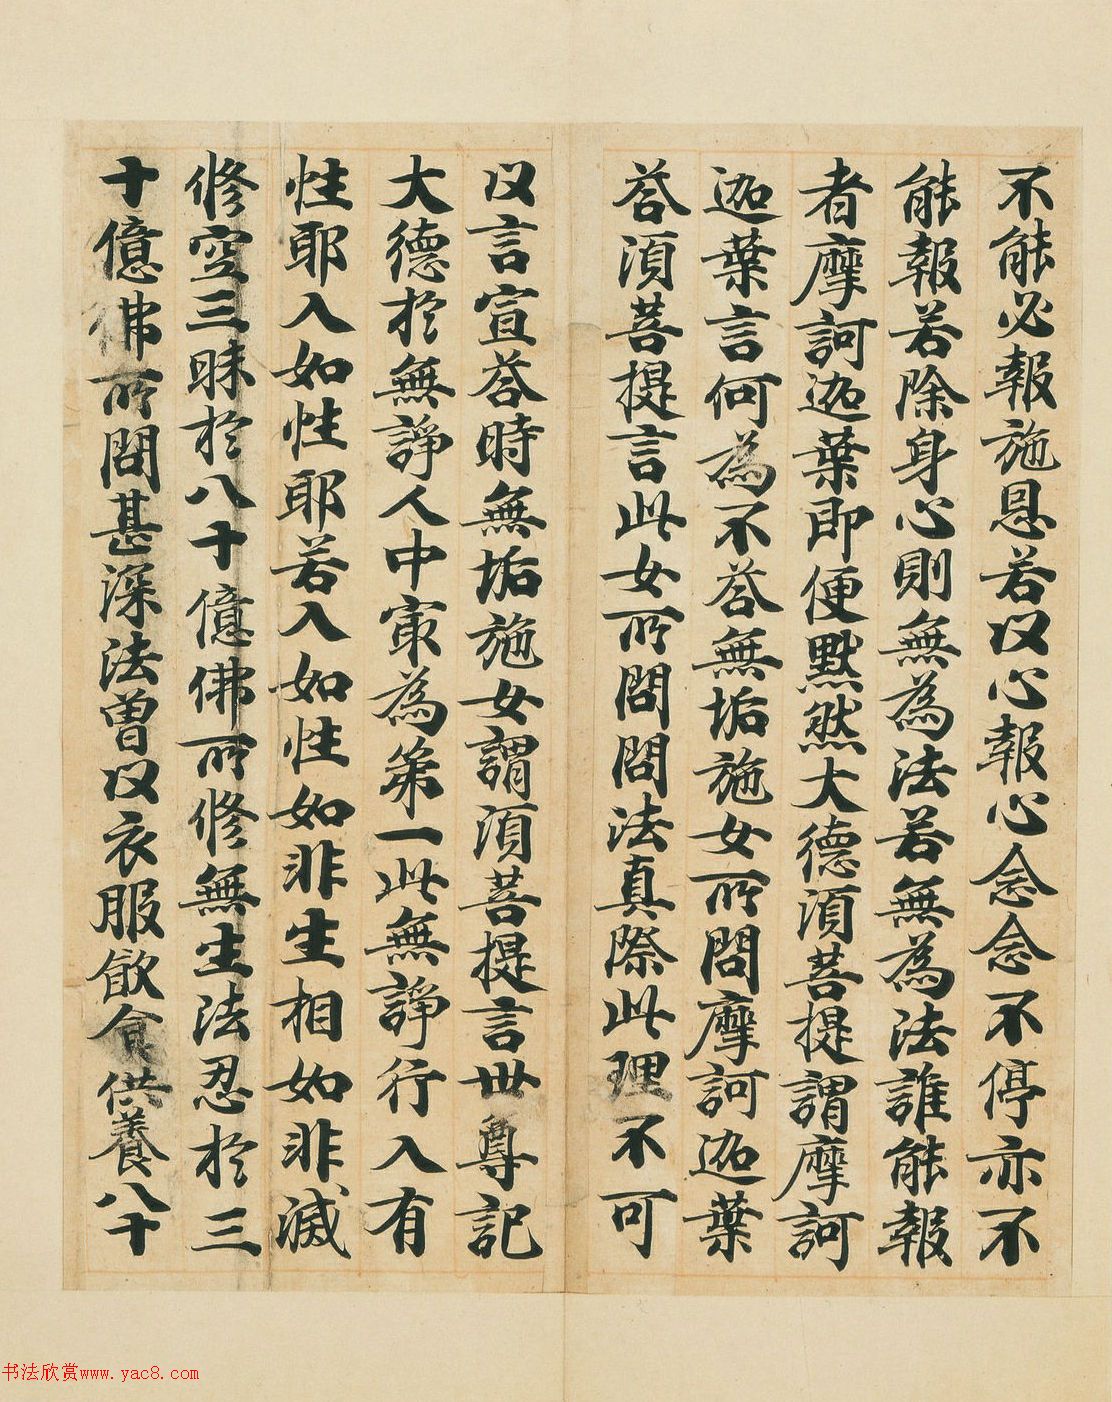 不能必報施恩若以心報心念念不停亦不
能報若除身心則無為法若無為法誰能報
者摩訶迦葉即便默然大德須菩提謂摩訶
迦葉言何為不荅無垢施女所問摩訶迦葉
荅須菩提言此女所問問法真際此理不可
以言宣荅時無垢施女謂須菩提言世尊記
大德於無諍人中㝡為第一此無諍行入有
性耶入如性耶若入如性如非生相如非滅
修空三昧於八十億佛所修無生法忍於三
十億佛所問甚深法曾以衣服飲食供養八十
书法欣赏www.yac8.com